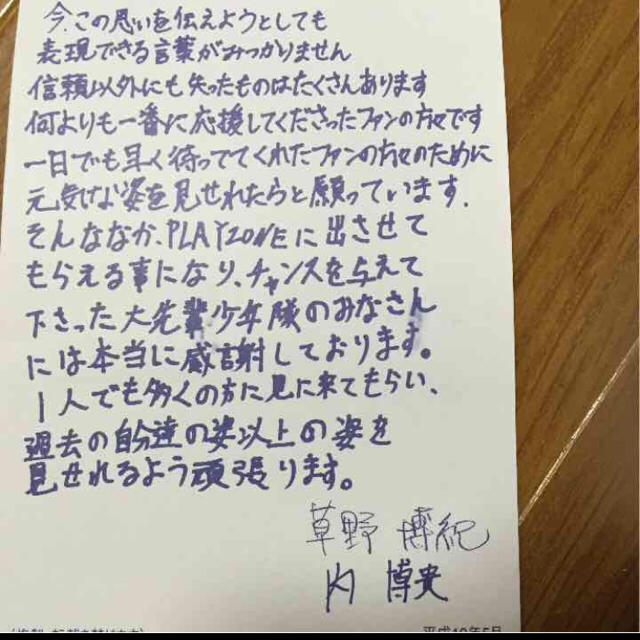 今、この思いを伝えようとしても
表現できる言葉がみつかりません
信頼以外にも失ったものはたくさんあります
何よりも一番に応援してくださったファンの方々です
一日でも早く待っててくれたファンの方々のために
元気な姿を見せれたらと願っています.
そんななか、PLAYZONEに出させて
もらえる事になり、チャンスを与えて
下さった大先輩少年隊のみなさん
には本当に感謝しております。
1人でも多くの方に見に来てもらい、
過去の自分達の姿以上の姿を
見せれるよう頑張ります。
草野 博紀
内 博貴